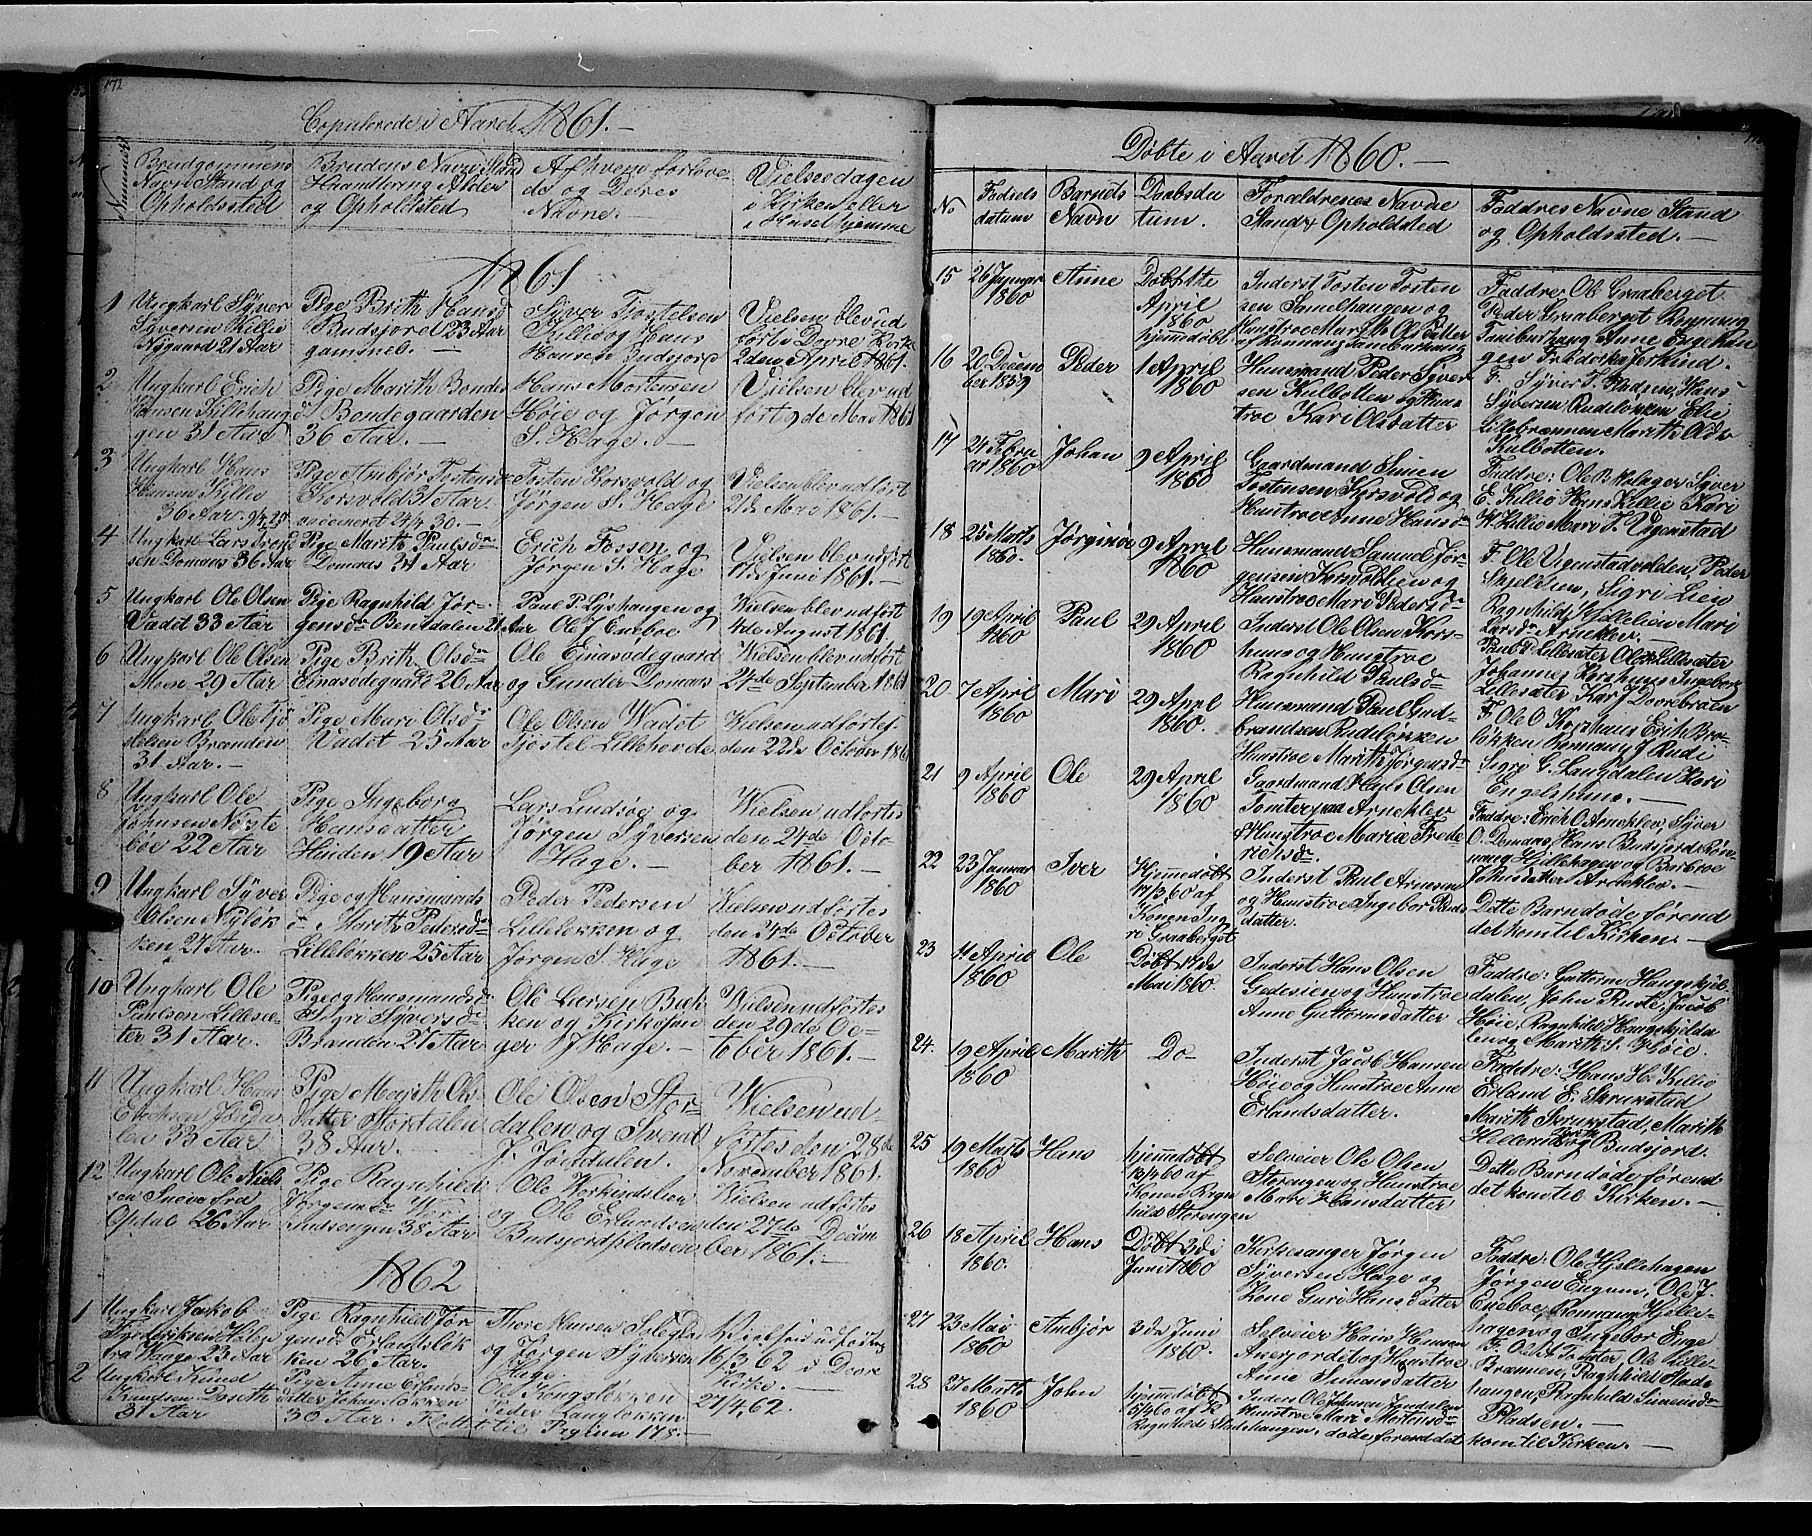 172
Copulerede i Aaret 1861.-
Nummer
Brudgommens
Navn Stand og
Opholdssted
Brudens Navn Stand
Haandtering Alder
og Opholdsted
Navne.-
Vielsesdagen
i Kirken eller
i Huset hjemme
1861
1
Ungkarl Syver
Syversen Killie
Nygaard 21 Aar
Pige Brith Hansd
Budsjord 23 Aar
Syver Tostelsen
Killie og Hans
Hansen Budsjord
Vielsen blev ud
ført i Dovre Kirke
2den April 1861.
2
Ungkarl Erich
Hansen Killehaug
gen 31 Aar
Pige Marith Bonde
Bondegaarden
36 Aar.-
Hans Mortensen
Høie og Jørgen
S. Hage.-
Vielsen blev ud
ført 9de Mai 1861
3
Ungkarl Hans
Hansen Killie
36 Aar 9/4 25
Pige Ambjør Tostensd
Korsvold 31 Aar
vacineret 24/4 30.-
Tosten Korsvold og
Jørgen S. Hedge
Vielsen blev udført
21de Mai 1861.-
4
Ungkarl Lars Svend
sen Domaas 36 Aar
Pige Marith Paulsdr
Domaas 31 Aar
Erich Fossen og
Jørgen S. Hage
Vielsen blev udført
11de Juni 1861.-
5
Ungkarl Ole Olsen
Vadet 33 Aar
Pige Ragnhild Jør-
gensdr Bentdalen 21 Aar
Paul P. Lyshaugen og
Ole J Eneboe
Wielsen blev udført
4de August 1861.
6
Ungkarl Ole Olsen
Moen 29 Aar
Pige Brith Olsdr
Einasødegaard 26 Aar
Ole Einasødegaard
og Gunder Domaas
Wielsen blev udført
24de September 1861
7
Ungkarl Ole Tjø
stelsen Brænden
31 Aar.-
Pige Mari Olsdr
Vadet 25 Aar
Ole Olsen Wadet
Tjøstel Lillehovde
Wielsen udførtes
den 22de October 1861
8
Ungkarl Ole
Johnsen Nørste
bøe 22 Aar
Pige Ingeborg
Hansdatter
Heiden 19 Aar
Lars Lindsøe og
Jørgen Syversen
Hage.-
Wielsen udførtes
den 24de Octo-
ber 1861.-
9
Ungkarl Syver
Olsen Nyløk
ken 27 Aar.
Pige og Huusmands
dr Marith Pedersdr
Lilleløkken 25 Aar
Peder Pedersen
Lilleløkken og
Jørgen S. Hage
Wielsen udførtes
den 24de October
1861.-
10
Ungkarl Ole
Paulsen Lillesæ-
ter 31 Aar.
Pige og Huusmandsd
Sigri Syversdr
Brænden 27 Aar
Ole Larsen Bæk-
ken og Kirkesan
ger J Hage.-
Wielsen udførtes
den 29de Oc-
tober 1861.-
11
Ungkarl Hans
Erichsen Jønda
len 33 Aar
Pige Marith Ols
datter Stordalen
38 Aar.-
Ole Olsen Stor-
dalen og Svend
J. Jøndalen.
Wielsen ud-
førtes den 28de
November 1861.
12
Ungkarl Ole Niels
sen Snøve fra
Opdal 26 Aar
Pige Ragnhild
Jørgensdr
38 Aar
Ole
og Ole Erlandsen
Budsjordpladsen
Wielsen udførtes
den 27de Decem
ber 1861.-
1862
1
Ungkarl Jakob
fra Waage 23 Aar
Pige Ragnhild Jør
gensdr Erlandsløk
ken 26 Aar.
Thore Hansen
og Jørgen Syversen
Hage.-
Wielsen udførtes
16/3 62 i Dovre
Kirke.-
2
Ungkarl Knud
Knudsen
31 Aar
Pige Anne Erlands-
datter Johansløkken
30 Aar.
Ole Kongsløkken
Peder Langløkken
27/4 62.
Pagina 178.-
Døbte i Aaret 1860.-
No
Fødsels
datum
Barnets
Navn
Daabsda
tum.
Forældrenes Navne
Stand & Opholdsted
Faddres Navne Stand
og Opholdssted.-
15
26 Januar
1860
Anne
Døbt
April
1860
hjemedøbt
Inderst Tosten Tosten
sen Samelhaugen og
Faddre: Ol. Graaberget
Peder Graaberget Rønnaug
16
20 Decem
ber 1859
Peder
1 April
1860
Huusmand Peder Syver
sen Kulbotten og Huus-
troe Kari Olsdatter
F. Syver T. Stadsvie, Hans
Syversen Rudiløkken Eli
Lillebrænnen Marith Olsdr
Kulbotten.
17
24 Febru
ar 1860
Johan
9 April
1860
Gaardmand Simen
Tostensen Korsvold og
Hustroe Anne Hansdr
Faddre: Ole B. Holager Syver
E. Killie Hans Killie Kari
H. Killie Mari T. Vigenstad
18
25 Marts
1860.
Jørgine
9 April
1860
Huusmand Samuel Jør-
gensen Korsvoldlien og
Huustroe Mari Pedersdr
F. Ole Vigenstadvolden, Peder
Skjeldsien, Sigri Lien
Ragnhild Hjellelien Mari
Larsdr Arneklev.-
19
19 April
1860
Paul
29 April
1860
Inderst Ole Olsen Kors-
huus og Huustroe
Ragnhild Paulsdr
Paul P. Lillesæter Ol. Lillesæter
Johannes Korshuus Ingeborg
Lillesæter Kari J Dovrebroen
20
7 April
1860
Mari
29 April
1860.
Huusmand Paul Gud-
brandsen Rudiløkken
Huustroe Marith Jørgensdr
F. Ole O Korshuus Erich Bræ-
løkken Rønnaug J Rudi
Sigri E. Langdalen Kari
Engelshuus.-
21
9 April
1860
Ole
29 April
1860
Gaardmand Hans Olsen
Tomter paa Arneklev
& Huustroe Marie Frede
riksdr.
Faddre: Erich O. Arneklev, Syver
O. Domaas, Hans Budsjord, Røn-
naug Hjellehagen og Barbroe
Johnsdatter Arneklev.-
22
23 Januar
1860
Iver
Hjemmedøbt
14/3 60 af
Konen Ing
ri Graaberget
Inderst Paul Arnesen
og Huustroe Ingebor Pauls
datter.
Dette Barn døde førend
det kom til Kirken.-
23
4 April
1860
Ole
Døbt 17de
Mai 1860.
Inderst Hans Olsen
Gedesien og Huustroe
Anne Guttormsdatter
Faddre: Guttorm Haugskjel
dalen, John Ruste, Jacob
Høie, Ragnhild Haugskjelda
len og Marith S. Høie.
24.
19 April
1860
Marith
Do
Inderst Jacob Hansen
Høie og Huustroe Anne
Erlandsdatter.
Faddre: Hans H. Killie
Erland E. Skrumstad
Marith Skrumstad, Marith
Killie og Brith Budsjord.
25
19 Marts
1860
Hans
hjemmdøbt
13/4 60 af
Konen Ragn
hild Storengen
Selveier Ole Olsen
Storengen og Huustroe
Mari Hansdatter
Dette Barn døde førend
det kom til Kirken.-
26
18 April
1860.
Hans
Døbt 3di
Juni 1860
Kirkesanger Jørgen
Syversen Hage og
Kone Guri Hansdatter
Faddre: Ole Hjellehagen
Jørgen Engum, Ole J.
Eneboe, Rønnaug Hjelle-
hagen og Ingebor Enge
27
23 Mai
1860
Ambjør
3de Juni
1860.
Selveier Hans Hansen
og Huustroe
Anne Simensdatter
F. Ole T Tofter, Ole Lille-
Brænnen, Ragnhild Hade
haugen, Ragnhild Simensdr
Pladsen.-
28
27 Marts
1860
John
hjemmedøbt
15/4 60 af
Ragnhild Stadshaugen,
Inderst Ole Johnsen Jøndalen
Huustroe Mari Mortensdr
døde førend det
kom til Kirken.-